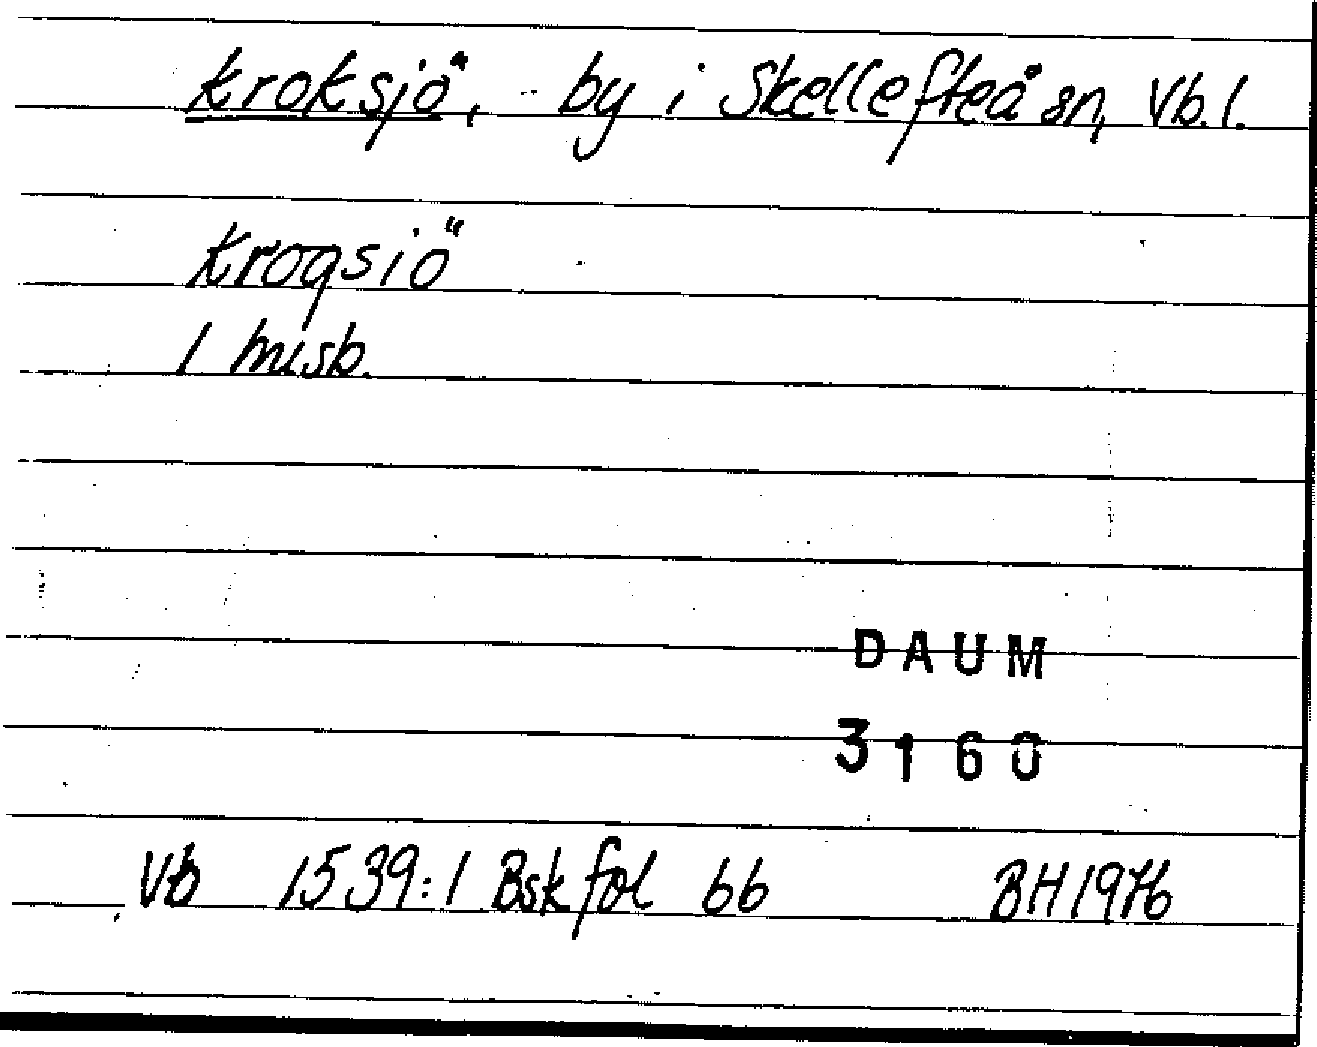 Kroksjö, by i Skellefteå sn, Vb. l.
Kroqsiö
1 misb.
DAUM
3160
Vb 1539:1 Bsk fol 66 BH 1976